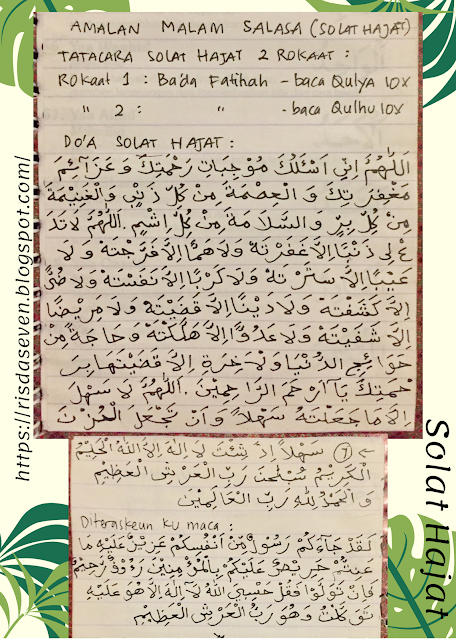 AMALAN MALAM SALASA (SOLAT HAJAT)
TATACARA SOLAT HAJAT 2 ROKAAT :
ROKAAT 1 : Ba'da Fatihah - baca Qulya 10x
" 2 : " - baca Qulhu 10x
DO'A SOLAT HAJAT :
اَللّٰهُمَّ اِنِّي اَسْئَلُكَ مُوْجِبَاتِ رَحْمَتِكَ وَ عَزَآئِمَ
مَغْفِرَ تِكَ وَ الْعِصْمَةَ مِنْ كُلِّ ذَنْبٍ وَالْغَنِيْمَةَ
مِنْ كُلِّ بِرٍّ وَ السَّلَا مَةَ مِنْ كُلِّ اِثْمٍ . اَللّٰهُمَّ لَا تَدَ
عْ لِى ذَنْبًا اِلَّا غَفَرْ تَهُ وَلَا هَمًّا اِلَّا فَرَّجْتَهُ وَ لَا
عَيْبًا اِلَّا سَتَرْ تَهُ وَلَا كَرْبًا اِلَّا نَفَّسْتَهُ وَلَا ضُرًّا
اِلَّا كَشَفْتَهُ وَلَا دَيْنًا اِلَّا قَضَيْتَهُ وَلَا مَرِيْضًا
اِلَّا شَفَيْتَهُ وَلَا عَدُوًّا اِلَّا هَلَكْتَهُ وَ حَا جَةً مِنْ
حَوَ ائِجِ الدُّنْيَا وَلْاٰخِرَةِ اِلَّا قَضَيْتَهَا بِرَ
حْمَتِكَ يَا اَرْ حَمَ الرَّا حِمِيْنَ . اَللّٰهُمَّ لَا سَهْلَ
اِلَّا مَا جَعَلْتَهُ سَهْلًا وَ اَنْ تَجْعَلَ الْحُزْ نَ
سَهْلًا اِذَ شِئْتَ لَا اِلٰهَ اِلَّا اللهُ الْحَلِيْمُ
الْكَرِيْمُ سُبْحٰنَ رَبِّ الْعَرْشِ الْعَظِيْمِ
وَ الْحَمْدُ لِلّٰهِ رَبِّ الْعَالَمِيْنَ
Diteraskeun ku maca :
لَقَدْ جَآءَكُمْ رَسُوْلٌ مِّنْ اَنْفُسِكُمْ عَزِيْزٌ عَلَيْهِ مَا
عَنِتُّمْ حَرِيْصٌ عَلَيْكُمْ بِالْمُؤْمِنِيْنَ رَءُوْفٌ رَّحِيْمٌ
فَاِنْ تَوَلَّوْا فَقُلْ حَسْبِيَ اللهُ لَا اِلٰهَ اِلَّا هُوَ عَلَيْهِ
تَوَ كَّلْتُ وَ هُوَ رَبُّ الْعَرْشِ الْعَظِيْمِ
https://risdaseven.blogspot.com/
Solat Hajat